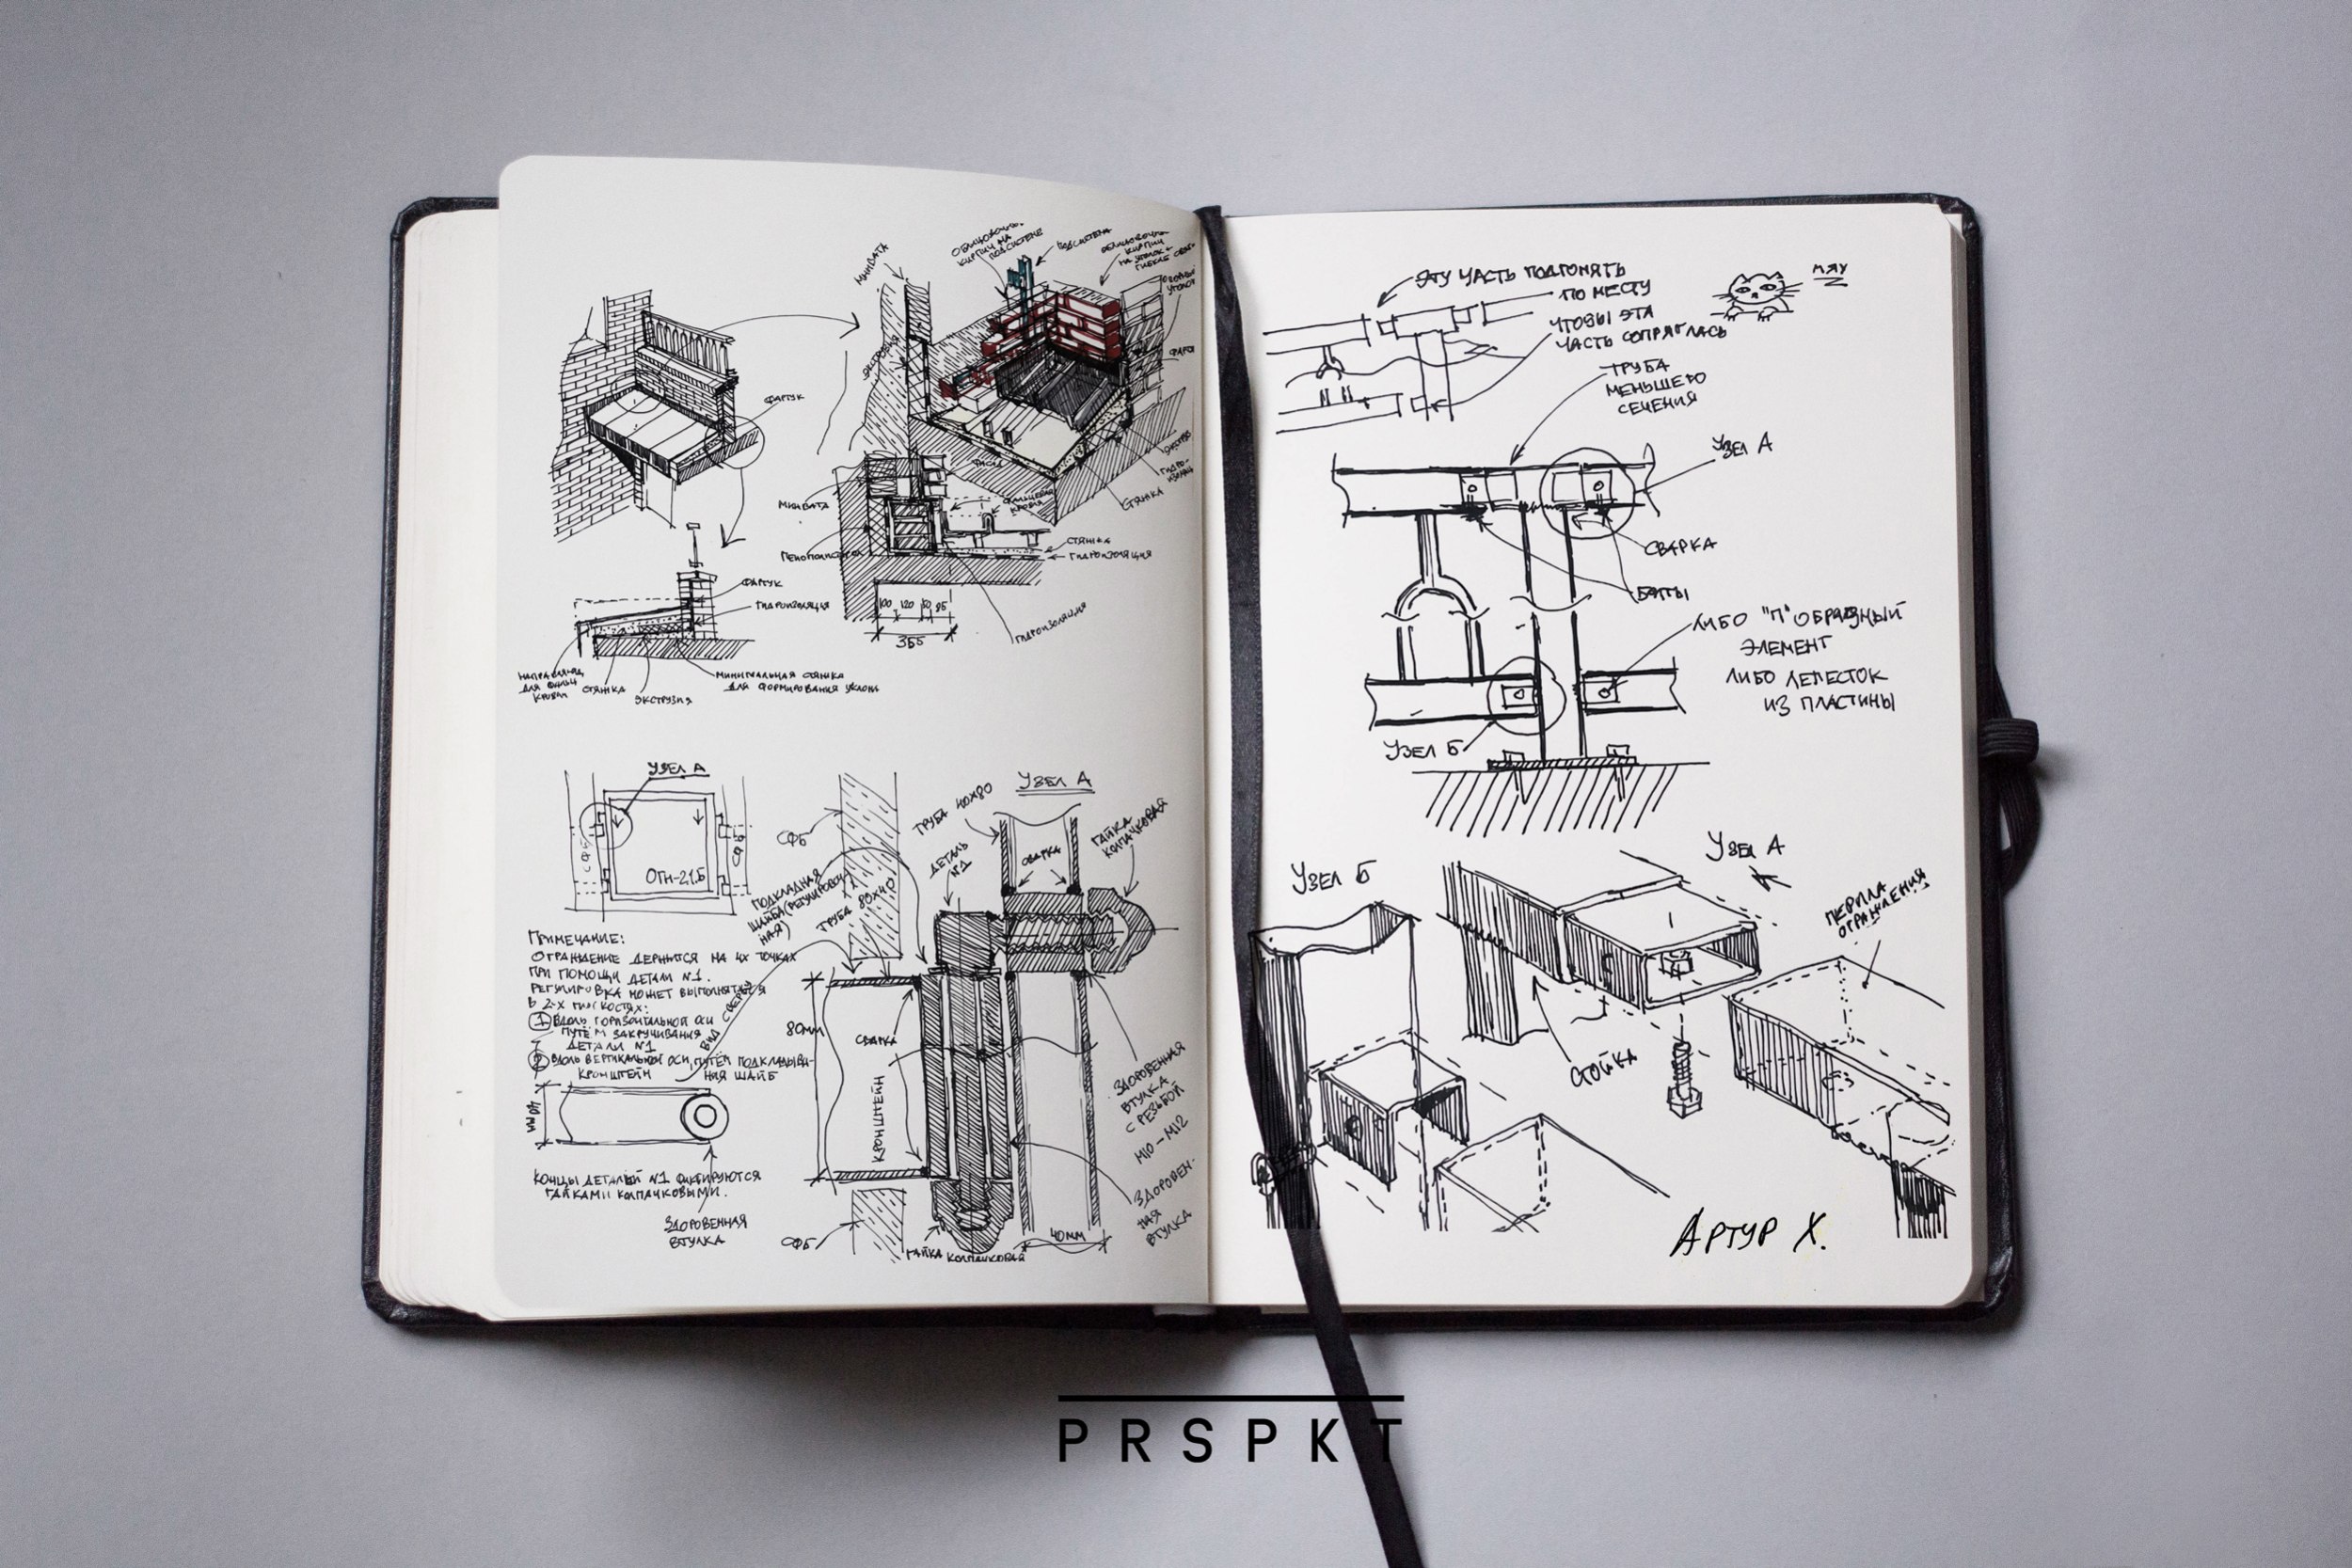 МИНВАТА
ОБЛИЦОВОЧН.
КИРПИЧ НА
ПОДСИСТЕМЕ
ПОДСИСТЕМА
КИРПИЧ
НА УГОЛОК +
ФАРТУК
МИНВАТА
СТЯЖКА
СТЯЖКА
ГИДРОИЗОЛЯЦИЯ
ГИДРОИЗОЛЯЦИЯ
100 120 50 85
355
ФАРТУК
ГИДРОИЗОЛЯЦИЯ
СТЯЖКА
ЭКСТРУЗИЯ
МИНИМАЛЬНАЯ СТЯЖКА
ДЛЯ ФОРМИРОВАНИЯ УКЛОНА
УЗЕЛ А
СФБ
СФБ
ОГН-21.Б
ПРИМЕЧАНИЕ:
ОГРАЖДЕНИЕ ДЕРЖИТСЯ НА 4Х ТОЧКАХ
ПРИ ПОМОЩИ ДЕТАЛИ №1.
РЕГУЛИРОВКА МОЖЕТ ВЫПОЛНЯТЬСЯ
В 2-Х ПЛОСКОСТЯХ:
1 ВДОЛЬ ГОРИЗОНТАЛЬНОЙ ОСИ
ПУТЁМ ЗАКРУЧИВАНИЯ
ДЕТАЛИ №1
2 ВДОЛЬ ВЕРТИКАЛЬНОЙ ОСИ, ПУТЁМ ПОДКЛАДЫВА-
НИЯ ШАЙБ
КРОНШТЕЙН
ВИД СВЕРХУ
40 ММ
КОНЦЫ ДЕТАЛЕЙ №1 ФИКСИРУЮТСЯ
ГАЙКАМИ КОЛПАЧКОВЫМИ.
ЗДОРОВЕННАЯ
ВТУЛКА
УЗЕЛ А
СФБ
ТРУБА 40Х80
ДЕТАЛЬ
№1
СВАРКА
ГАЙКА
КОЛПАЧКОВАЯ
ПОДКЛАДНАЯ
ШАЙБА (РЕГУЛИРОВОЧ-
НАЯ)
ТРУБА 80Х40
80ММ
СВАРКА
КРОНШТЕЙН
ЗДОРОВЕННАЯ
ВТУЛКА
С РЕЗЬБОЙ
М10 - М12
ЗДОРОВЕН-
НАЯ
ВТУЛКА
СФБ
ГАЙКА КОЛПАЧКОВАЯ
40ММ
ЭТУ ЧАСТЬ ПОДГОНЯТЬ
ПО МЕСТУ
ЧТОБЫ ЭТА
ЧАСТЬ СОПРЯГЛАСЬ
МЯУ
ТРУБА
МЕНЬШЕГО
СЕЧЕНИЯ
УЗЕЛ А
СВАРКА
БОЛТЫ
ЛИБО "П" ОБРАЗНЫЙ
ЭЛЕМЕНТ
ЛИБО ЛЕПЕСТОК
ИЗ ПЛАСТИНЫ
УЗЕЛ Б
УЗЕЛ Б
УЗЕЛ А
ПЕРИЛА
ОГРАЖДЕНИЯ
СТОЙКА
АРТУР Х.
PRSPKT